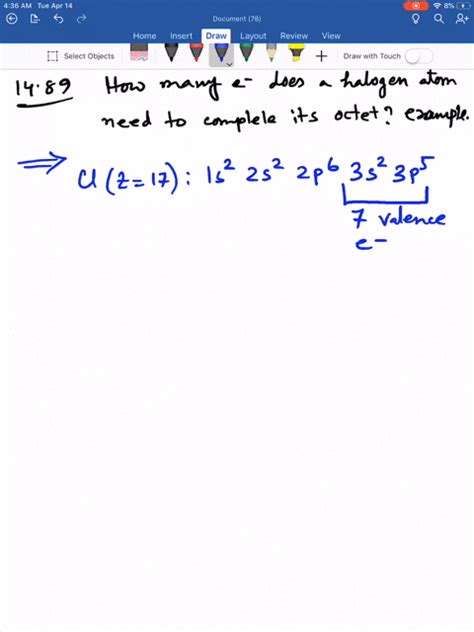 4:36 AM Tue Apr 14
8%
Document (78)
Home Insert Draw Layout Review View
Select Objects
Draw with Touch
14.89 How many e- does a halogen atom
need to complete its octet? example.
⇒ Cl (Z=17): 1s² 2s² 2p⁶ 3s² 3p⁵
7 valence
e-